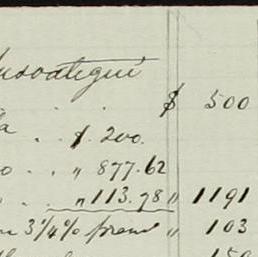 $ 500
a . . $ 200.
o . . " 877.62
. . " 113.78 " 1191
3 1/4 % prem " 103
150